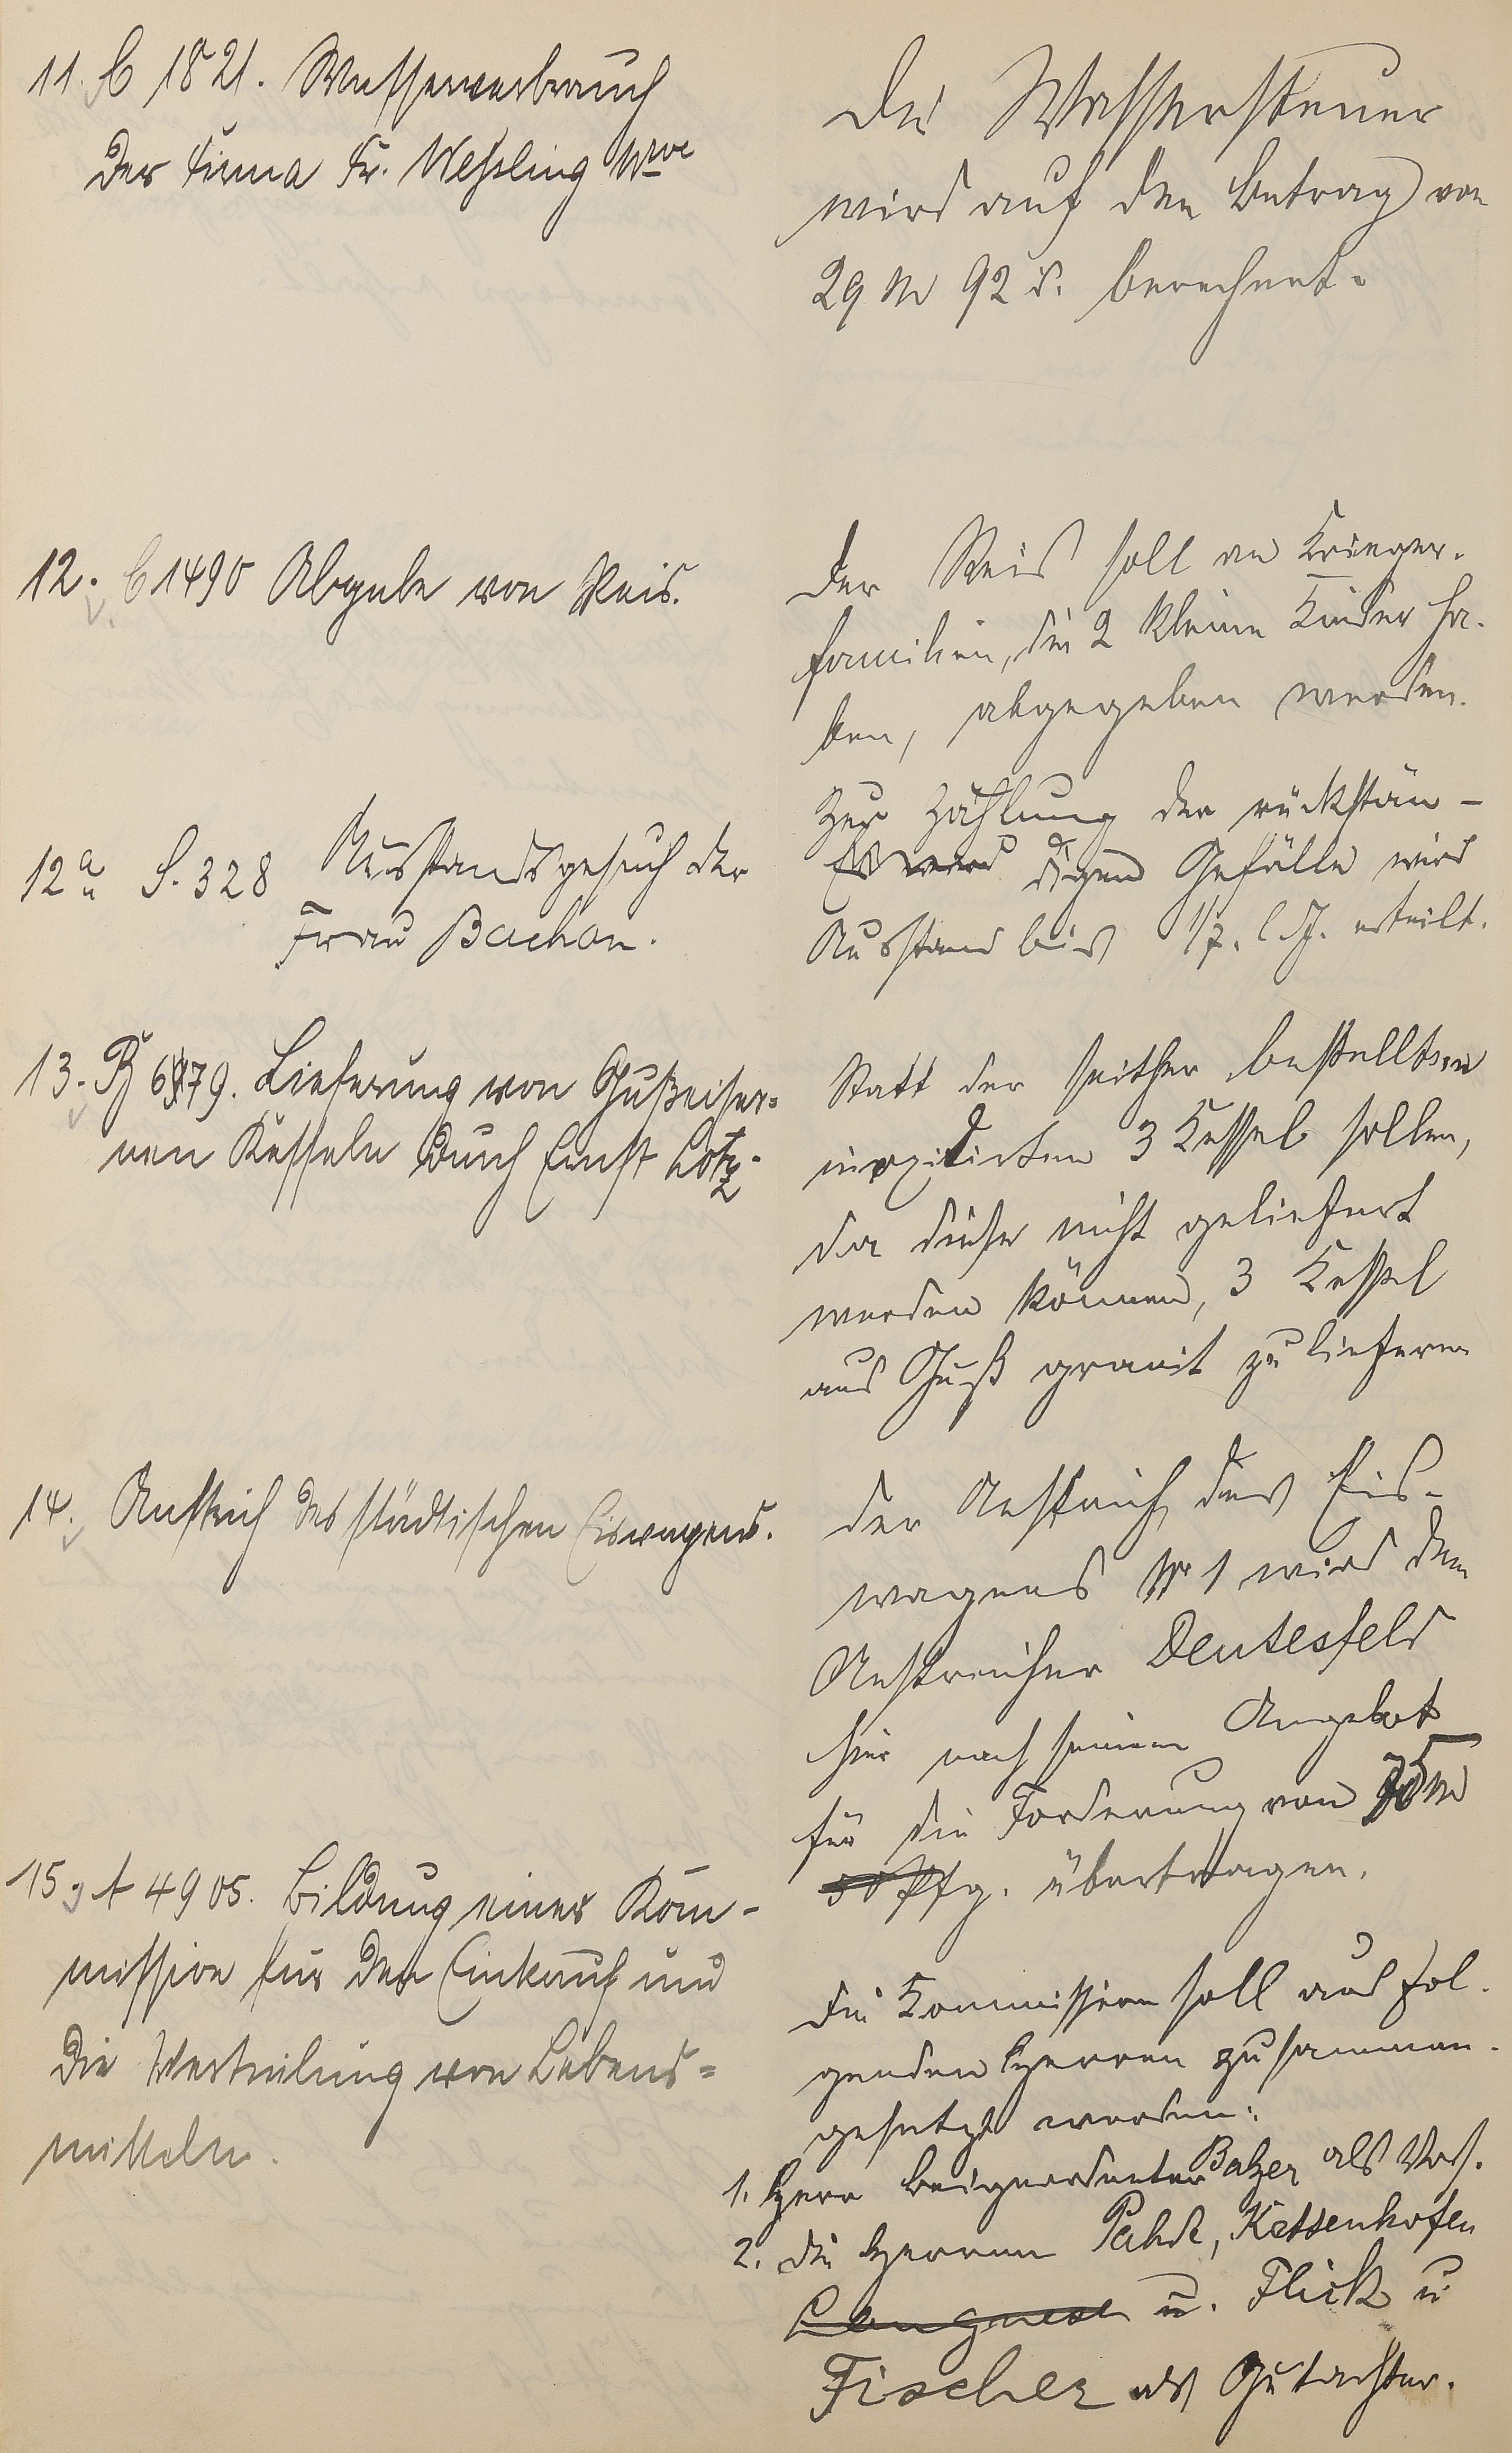 11. C 1821. Wasserverbrauch
der Firma Fr. Weßling Wwe
Die Wassersteuer
wird auf den Betrag von
29 M 92 d. berechnet.
12. C 1490 Abgabe von Reis.
Der Reis soll an Krieger-
familien, die 2 kleine Kinder ha-
ben, abgegeben werden.
12a S. 328 Ausstandsgesuch der
Frau Bachon.
Zur Zahlung der rückstän-
Es wird digen Gefälle wird
Ausstand bis 1/7. l. J. erteilt.
13. B 6979. Lieferung von Gußeiser-
nen Kesseln durch Ernst Lotz.
Statt der seither bestellten
inoxidirten 3 Kessel sollen,
da diese nicht geliefert
werden können, 3 Kessel
aus Guß granit zu liefern
14. Anstrich des städtischen Eiswagens.
Der Anstrich des Eis-
wagens Nr 1 wird dem
Anstreicher Deutesfeld
hier nach seinem Angebot
für die Forderung von 75 M
50 Pfg. übertragen.
15. A 4905. Bildung einer Kom-
mission für den Einkauf und
die Verteilung von Lebens-
mitteln.
Die Kommission soll aus fol-
genden Herren zusammen-
gesetzt werden:
1. Herr Beigeordneter Balzer als Vors.
2. die Herren Pahde, Kettenhofen
Langnese u. Flick u
Fischer als Gutachter.